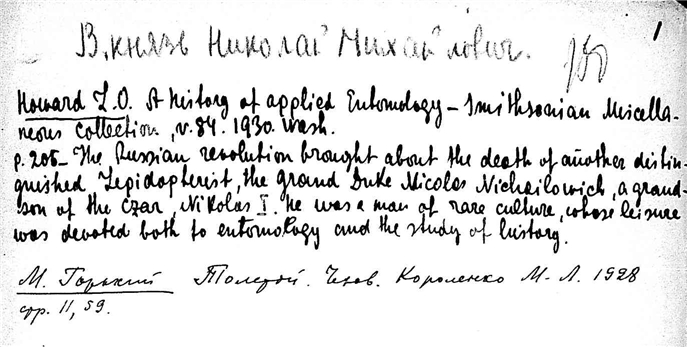 1
В. князь Николай Михайлович.
Howard L.O. A history of applied Entomology – Smithsonian Miscella-
neous collection, v. 84. 1930. Wash.
p. 205 – The Russian revolution brought about the death of another distin-
guished Lepidopterist, the grand Duke Nicolas Michailowich, a grand-
son of the Czar, Nikolas I. he was a man of rare culture, whose leisure
was devoted both to entomology and the study of history.
М. Горький Толстой. Чехов. Короленко М.-Л. 1928
стр. 11, 59.